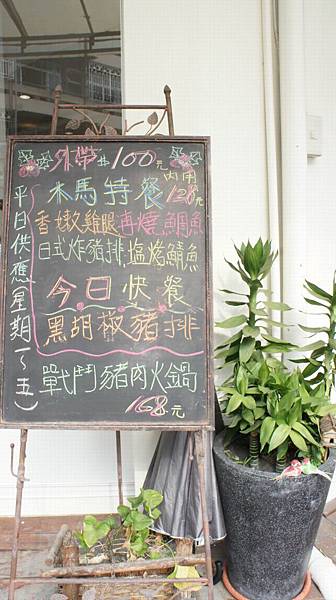 外帶$100元
木馬特餐 內用128元
香嫩雞腿 再燒鯛魚
日式炸豬排,塩烤鯖魚
今日快餐
黑胡椒豬排
平日供應星期(一~五)
戰鬥豬肉火鍋
168元